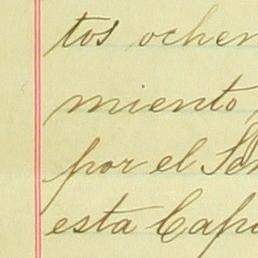 tos ochen
miento,
por el
esta Cap